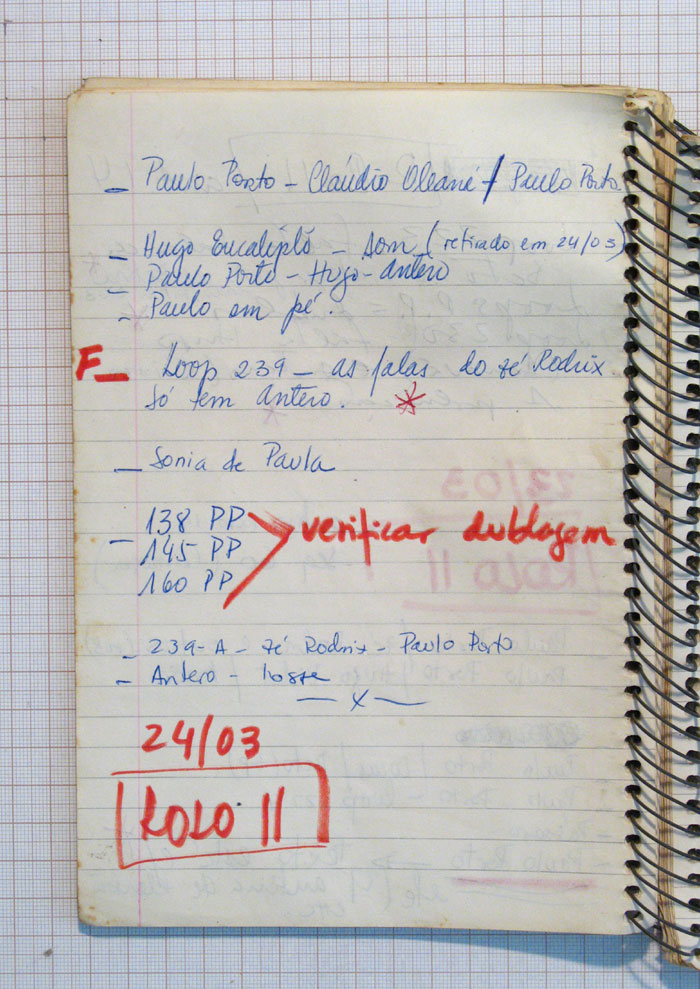 — Paulo Porto - Claúdio Oleane / Paulo Porto
— Hugo Eucaliplô - Som (retirado em 24/03)
— Paulo Porto - Hugo - Antero
- Paulo em pé.
F— Loop 239 - as falas do zé Rodrix
só tem Antero. *
— Sonia de Paula
138 PP
— 145 PP verificar dublagem
160 PP
- 239-A - zé Rodrix - Paulo Porto
- Antero - tosse
— x —
24/03
ROLO 11